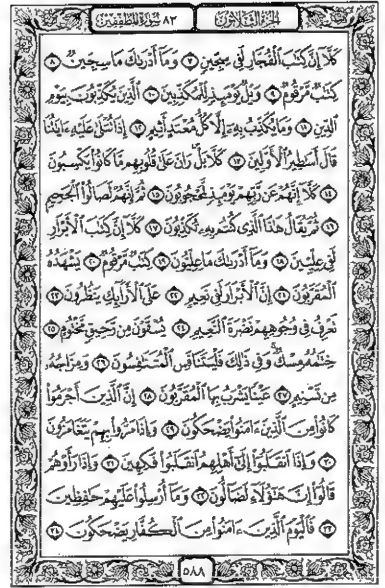 الجزء الثلاثون ٨٣ سورة المطففين
كَلَّآ إِنَّ كِتَٰبَ ٱلْفُجَّارِ لَفِى سِجِّينٍ ٧ وَمَآ أَدْرَىٰكَ مَا سِجِّينٌ ٨
كِتَٰبٌ مَّرْقُومٌ ٩ وَيْلٌ يَوْمَئِذٍ لِّلْمُكَذِّبِينَ ١٠ ٱلَّذِينَ يُكَذِّبُونَ بِيَوْمِ
ٱلدِّينِ ١١ وَمَا يُكَذِّبُ بِهِۦٓ إِلَّا كُلُّ مُعْتَدٍ أَثِيمٍ ١٢ إِذَا تُتْلَىٰ عَلَيْهِ ءَايَٰتُنَا
قَالَ أَسَٰطِيرُ ٱلْأَوَّلِينَ ١٣ كَلَّا بَلْ رَانَ عَلَىٰ قُلُوبِهِم مَّا كَانُوا۟ يَكْسِبُونَ
١٤ كَلَّآ إِنَّهُمْ عَن رَّبِّهِمْ يَوْمَئِذٍ لَّمَحْجُوبُونَ ١٥ ثُمَّ إِنَّهُمْ لَصَالُوا۟ ٱلْجَحِيمِ
١٦ ثُمَّ يُقَالُ هَٰذَا ٱلَّذِى كُنتُم بِهِۦ تُكَذِّبُونَ ١٧ كَلَّآ إِنَّ كِتَٰبَ ٱلْأَبْرَارِ
لَفِى عِلِّيِّينَ ١٨ وَمَآ أَدْرَىٰكَ مَا عِلِّيُّونَ ١٩ كِتَٰبٌ مَّرْقُومٌ ٢٠ يَشْهَدُهُ
ٱلْمُقَرَّبُونَ ٢١ إِنَّ ٱلْأَبْرَارَ لَفِى نَعِيمٍ ٢٢ عَلَى ٱلْأَرَآئِكِ يَنظُرُونَ ٢٣
تَعْرِفُ فِى وُجُوهِهِمْ نَضْرَةَ ٱلنَّعِيمِ ٢٤ يُسْقَوْنَ مِن رَّحِيقٍ مَّخْتُومٍ ٢٥
خِتَٰمُهُۥ مِسْكٌ وَفِى ذَٰلِكَ فَلْيَتَنَافَسِ ٱلْمُتَنَٰفِسُونَ ٢٦ وَمِزَاجُهُۥ
مِن تَسْنِيمٍ ٢٧ عَيْنًا يَشْرَبُ بِهَا ٱلْمُقَرَّبُونَ ٢٨ إِنَّ ٱلَّذِينَ أَجْرَمُوا۟
كَانُوا۟ مِنَ ٱلَّذِينَ ءَامَنُوا۟ يَضْحَكُونَ ٢٩ وَإِذَا مَرُّوا۟ بِهِمْ يَتَغَامَزُونَ
٣٠ وَإِذَا ٱنقَلَبُوٓا۟ إِلَىٰٓ أَهْلِهِمُ ٱنقَلَبُوا۟ فَكِهِينَ ٣١ وَإِذَا رَأَوْهُمْ
قَالُوٓا۟ إِنَّ هَٰٓؤُلَآءِ لَضَآلُّونَ ٣٢ وَمَآ أُرْسِلُوا۟ عَلَيْهِمْ حَٰفِظِينَ
٣٣ فَٱلْيَوْمَ ٱلَّذِينَ ءَامَنُوا۟ مِنَ ٱلْكُفَّارِ يَضْحَكُونَ ٣٤
٥٨٨